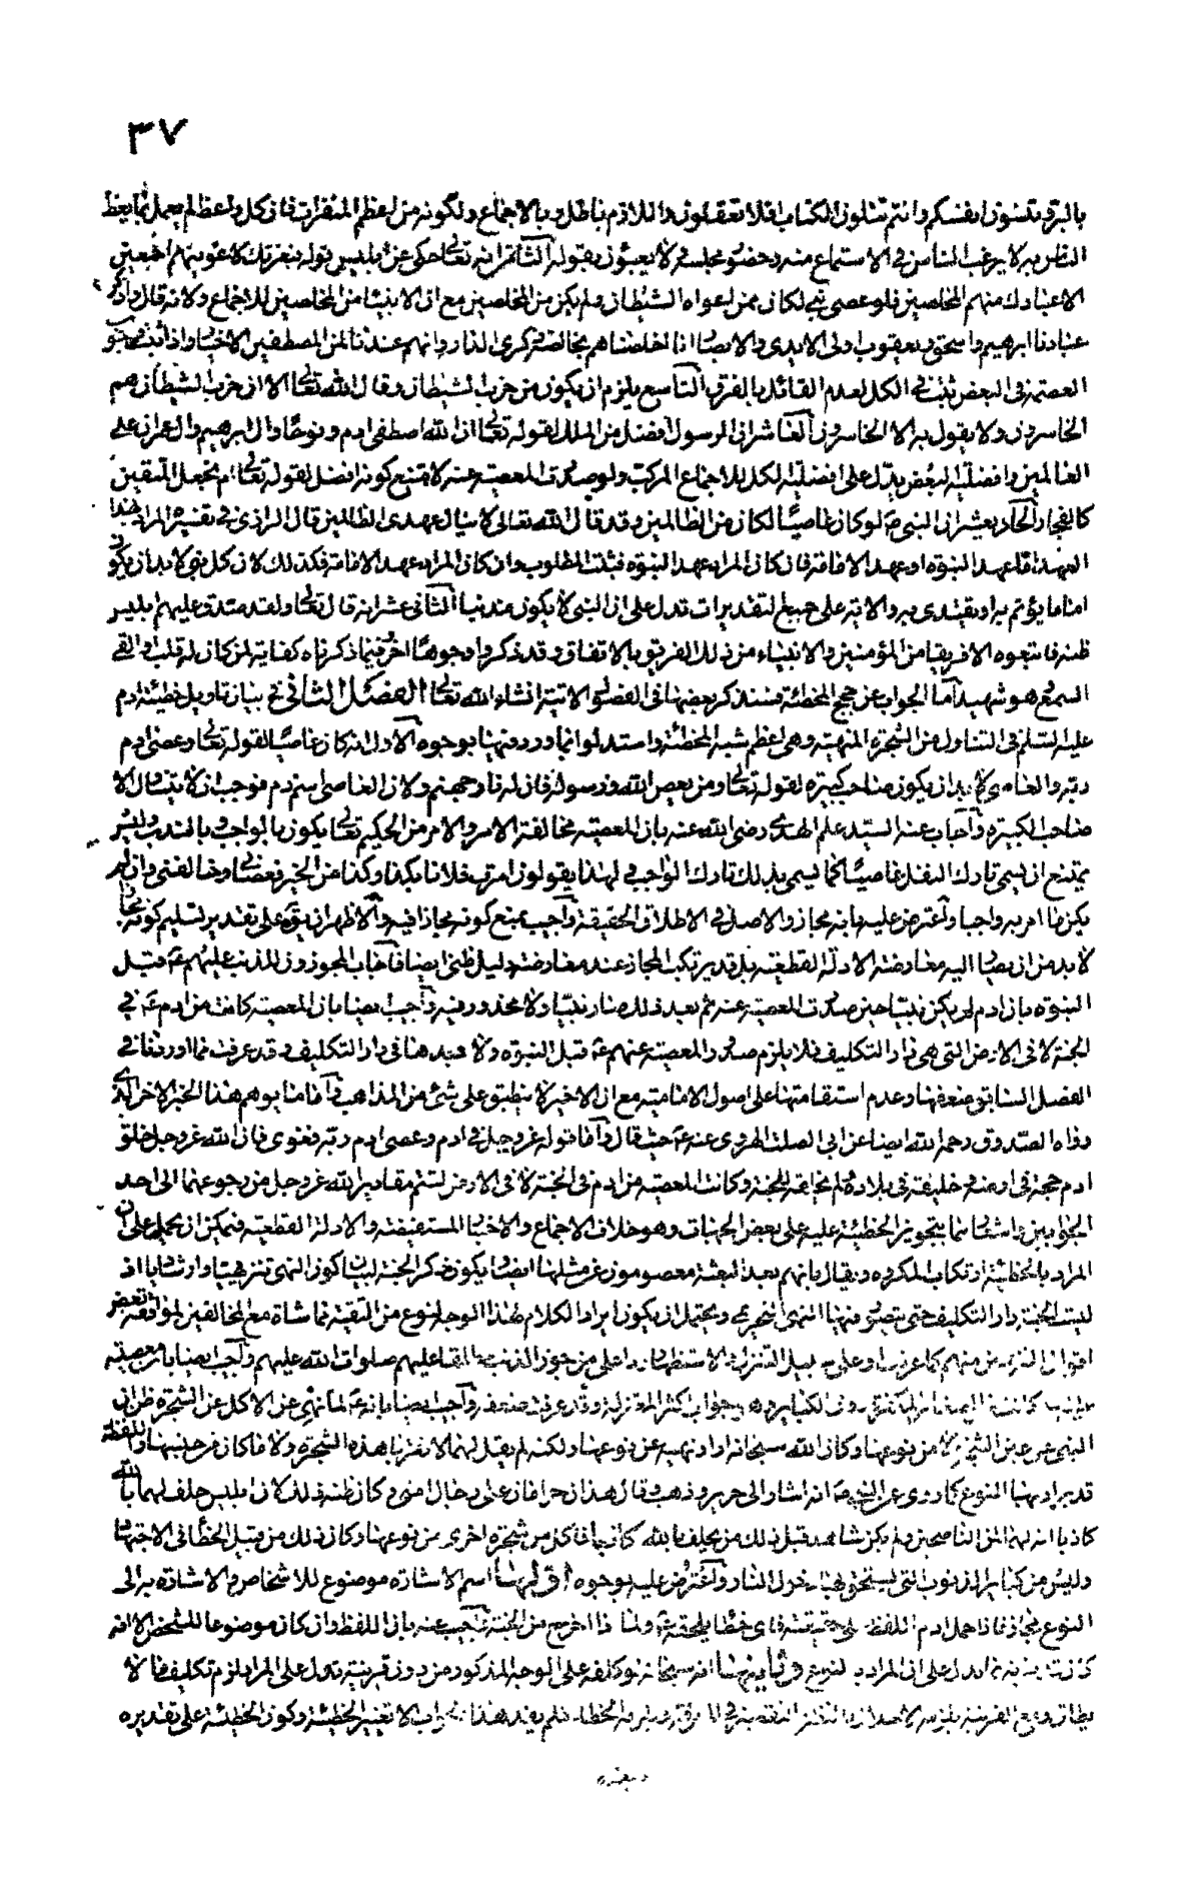 ٣٧
بالبر وتنسون انفسكم وانتم تتلون الكتاب افلا تعقلون واللازم باطل وبالاجماع ولكونه من اعظم المنفرات فان كل واعظ لم يعمل بما يعظ
الناس به لا يرغب الناس في الاستماع منه وحضور مجلسه ولا يعبئون بقوله الثامن انه تعالى حكى عن ابليس قوله فبعزتك لاغوينهم اجمعين
الا عبادك منهم المخلصين فلو عصى نبي لكان ممن اغواه الشيطان ولم يكن من المخلصين مع ان الانبياء من المخلصين للاجماع ولانه قال واذكر
عبادنا ابرهيم واسحق ويعقوب اولى الايدى والابصار انا اخلصناهم بخالصة ذكرى الدار وانهم عندنا لمن المصطفين الاخيار واذا ثبت وجوب
العصمة في البعض ثبت في الكل لعدم القائل بالفرق التاسع يلزم ان يكون من حزب الشيطان وقال الله تعالى الا ان حزب الشيطان هم
الخاسرون ولا يقول به الا الخاسرون العاشر ان الرسول افضل من الملك لقوله تعالى ان الله اصطفى ادم ونوحا وال ابرهيم وال عمران على
العالمين وافضلية البعض يدل على افضلية الكل للاجماع المركب ولو صدرت المعصية عنه لامتنع كونه افضل لقوله تعالى ام نجعل المتقين
كالفجار الحاديعشر ان النبي ص لو كان عاصيا لكان من الظالمين وقد قال الله تعالى لا ينال عهدى الظالمين قال الرازى في تفسيره المراد بهذا
العهد اما عهد النبوة او عهد الامامة فان كان المراد عهد النبوة فثبت المطلوب وان كان المراد عهد الامامة فكذلك لان كل نبي لا بد ان يكون
اماما يؤتم به او يقتدى به والاية على جميع التقديرات تدل على ان النبي لا يكون مذنبا الثاني عشر انه قال تعالى ولقد صدق عليهم ابليس
ظنه فاتبعوه الا فريقا من المؤمنين والانبياء من ذلك الفريق بالاتفاق وقد ذكروا وجوها اخر وفيما ذكرناه كفاية لمن كان له قلب او القى
السمع وهو شهيد اما الجواب عن حجج المخطئة فسنذكر بعضها في الفصول الاتية انشاء الله تعالى الفصل الثاني في بيان تاويل خطيئة ادم
عليه السلم في التناول من الشجرة المنهية وهى اعظم شبه المخطئة واستدلوا بما ورد فيها بوجوه الاول انه كان عاصيا لقوله تعالى وعصى ادم
ربه والعاصى لا بد ان يكون صاحب كبيرة لقوله تعالى ومن يعص الله ورسوله فان له نار جهنم ولان العاصى اسم ذم فوجب ان لا يتناول الا
صاحب الكبيرة واجاب عنه السيد علم الهدى رضى الله عنه بان المعصية مخالفة الامر والامر من الحكيم تعالى يكون بالواجب وبالندب وليس
يمتنع ان يسمى تارك النفل عاصيا كما يسمى بذلك تارك الواجب ولهذا يقولون امرت فلانا بكذا وكذا من الخير فعصانى وخالفنى وان لم
يكن ما امر به واجبا واعترض عليه بانه مجاز والاصل في الاطلاق الحقيقة واجيب بمنع كونه مجازا فيه والاظهر ان يق على تقدير تسليم كونه مجازا
لا بد من ان يصار اليه معارضة الادلة القطعية بل قد يرتكب المجاز عند معارضة دليل ظنى ايضا واجاب المجوزون للذنب عليهم ع قبل
النبوة بان ادم لم يكن نبيا حين صدرت المعصية عنه ثم بعد ذلك صار نبيا ولا محذور فيه واجيب ايضا بان المعصية كانت من ادم ع في
الجنة لا في الارض التى هى دار التكليف فلا يلزم صدور المعصية عنهم ع قبل النبوة ولا بعدها في دار التكليف وقد عرفت مما اوردنا في
الفصل السابق ضعفها وعدم استقامتها على اصول الامامية مع ان الاخير لا ينطبق على شئ من المذاهب واما ما يوهم هذا الخبر الاخر الذى
رواه الصدوق رحمه الله ايضا عن ابى الصلت الهروى عنه ع حيث قال واما قوله عز وجل في ادم وعصى ادم ربه فغوى فان الله عز وجل خلق
ادم حجة في ارضه وخليفة في بلاده لم يخلقه للجنة وكانت المعصية من ادم في الجنة لا في الارض لتتم مقادير الله عز وجل من رجوعهما الى احد
الجوابين واشتمالهما بتجويز الخطيئة عليه على بعض الجهات وهو خلاف الاجماع والاخبار المستفيضة والادلة القطعية فيمكن ان يحمل على ان
المراد بالخطيئة ارتكاب المكروه ويقال بانهم بعد البعثة معصومون عن مثلها ايضا ويكون ذكر الجنة لبيان كون النهى تنزيهيا وارشاديا اذ
ليست الجنة دار التكليف حتى يتصور فيها النهى التحريمى ويحتمل ان يكون ايراد الكلام لهذا الوجه لنوع من التقية مماشاة مع المخالفين لموافقة بعض
اقوال ... منهم كما عرفت او على سبيل التنزل والاستظهار ردا على من جوز الذنب مطلقا عليهم صلوات الله عليهم واجيب ايضا بان معصيته
... كانت من الصغائر المكفرة دون الكبائر وهو جواب اكثر المعتزلة وقد عرفت ضعفه واجيب ايضا بانه ع لما نهى عن الاكل عن الشجرة ظن ان
النهى عن عين الشجرة لا عن نوعها وكان الله سبحانه اراد نهيه عن نوعها ولكنه لم يقل لهما لا تقربا هذه الشجرة ولا ما كان من جنسها واللفظة
قد يراد بها النوع كما روى عن النبي ص انه اشار الى حرير وذهب وقال هذان حرامان على رجال امتى وكان ظنه ذلك لان ابليس حلف لهما بالله
كاذبا انه لهما لمن الناصحين ولم يكن شاهد قبل ذلك من يحلف بالله كاذبا فاكل من شجرة اخرى من نوعها وكان ذلك من قبيل الخطأ في الاجتهاد
وليس من كبائر الذنوب التى يستحق بها دخول النار واعترض عليه بوجوه اولها اسم الاشارة موضوع للاشخاص والاشارة به الى
النوع مجاز فاذا حمل ادم اللفظ على حقيقته فاى خطأ يلحقه ع ولماذا اخرج من الجنة واجيب عنه بان اللفظ وان كان موضوعا للشخص الا انه
كانت قرينة تدل على ان المراد به النوع وثانيها انه سبحانه لو كلفه على الوجه المذكور من دون قرينة تدل على المراد لزم تكليف ما لا
يطاق ومع القرينة يلزم ... التقصير في ... الخطأ فلم يفد هذا الجواب الا تغيير الخطيئة وكون الخطيئة على تقديره